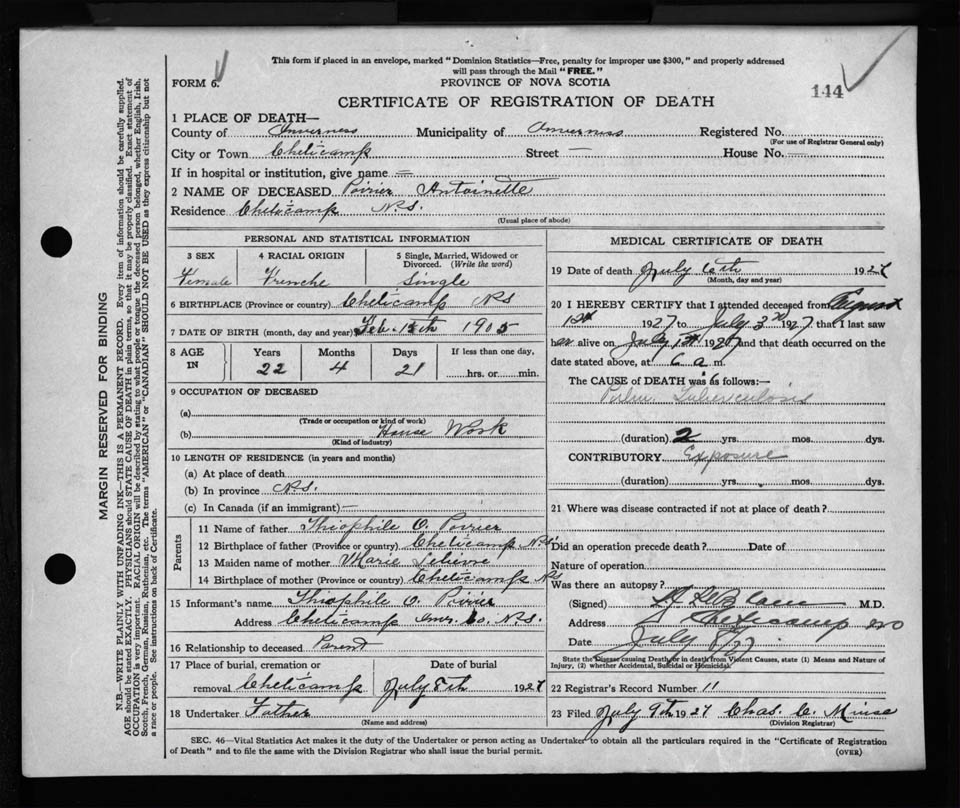 This form if placed in an envelope, marked "Dominion Statistics—Free, penalty for improper use $300," and properly addressed
will pass through the Mail "FREE."
FORM 6.
PROVINCE OF NOVA SCOTIA
144
CERTIFICATE OF REGISTRATION OF DEATH
1 PLACE OF DEATH—
County of Inverness Municipality of Inverness Registered No.
(For use of Registrar General only)
City or Town Cheticamp Street — House No. —
If in hospital or institution, give name —
2 NAME OF DECEASED Poirier Antoinette
Residence Cheticamp N.S.
(Usual place of abode)
PERSONAL AND STATISTICAL INFORMATION
3 SEX 4 RACIAL ORIGIN 5 Single, Married, Widowed or Divorced. (Write the word)
Female Frenche Single
6 BIRTHPLACE (Province or country) Cheticamp NS
7 DATE OF BIRTH (month, day and year) Feb. 15th 1905
8 AGE IN Years Months Days If less than one day,
22 4 21 hrs. or min.
9 OCCUPATION OF DECEASED
(a)
(Trade or occupation or kind of work)
(b) House Work
(Kind of industry)
10 LENGTH OF RESIDENCE (in years and months)
(a) At place of death
(b) In province N.S.
(c) In Canada (if an immigrant) —
Parents
11 Name of father Théophile O. Poirier
12 Birthplace of father (Province or country) Cheticamp N.S.
13 Maiden name of mother Marie
14 Birthplace of mother (Province or country) Cheticamp NS
15 Informant's name Théophile O. Poirier
Address Cheticamp Inver. Co. N.S.
16 Relationship to deceased Parent
17 Place of burial, cremation or removal Cheticamp Date of burial July 8th 1927
18 Undertaker Father
(Name and address)
MEDICAL CERTIFICATE OF DEATH
19 Date of death July 6th 1927
(Month, day and year)
20 I HEREBY CERTIFY that I attended deceased from August
1st 1927 to July 3rd 1927 that I last saw
her alive on July 1st 1927 and that death occurred on the
date stated above, at 6 a m.
The CAUSE of DEATH is as follows:—
Pulm. Tuberculosis
(duration) 2 yrs. mos. dys.
CONTRIBUTORY Exposure
(duration) yrs. mos. dys.
21 Where was disease contracted if not at place of death?
Did an operation precede death? Date of
Nature of operation
Was there an autopsy?
(Signed) M.D.
Address Cheticamp
Date July 8/27
State the Disease causing Death or in death from Violent Causes, state (1) Means and Nature of
Injury, (2) whether Accidental, Suicidal or Homicidal.
22 Registrar's Record Number 11
23 Filed July 9th 1927 Chas. C.
(Division Registrar)
SEC. 46—Vital Statistics Act makes it the duty of the Undertaker or person acting as Undertaker to obtain all the particulars required in the "Certificate of Registration
of Death" and to file the same with the Division Registrar who shall issue the burial permit. (OVER)
MARGIN RESERVED FOR BINDING
N.B.—WRITE PLAINLY WITH UNFADING INK—THIS IS A PERMANENT RECORD. Every item of information should be carefully supplied.
AGE should be stated EXACTLY. PHYSICIANS should STATE CAUSE OF DEATH in plain terms, so that it may be properly classified. Exact statement of
OCCUPATION is very important. RACIAL ORIGIN will be described by stating to what people or tongue the deceased person belonged, whether English, Irish,
Scotch, French, German, Russian, Ruthenian, etc. The terms "AMERICAN" or "CANADIAN" SHOULD NOT BE USED as they express citizenship but not
a race or people. See instructions on back of Certificate.